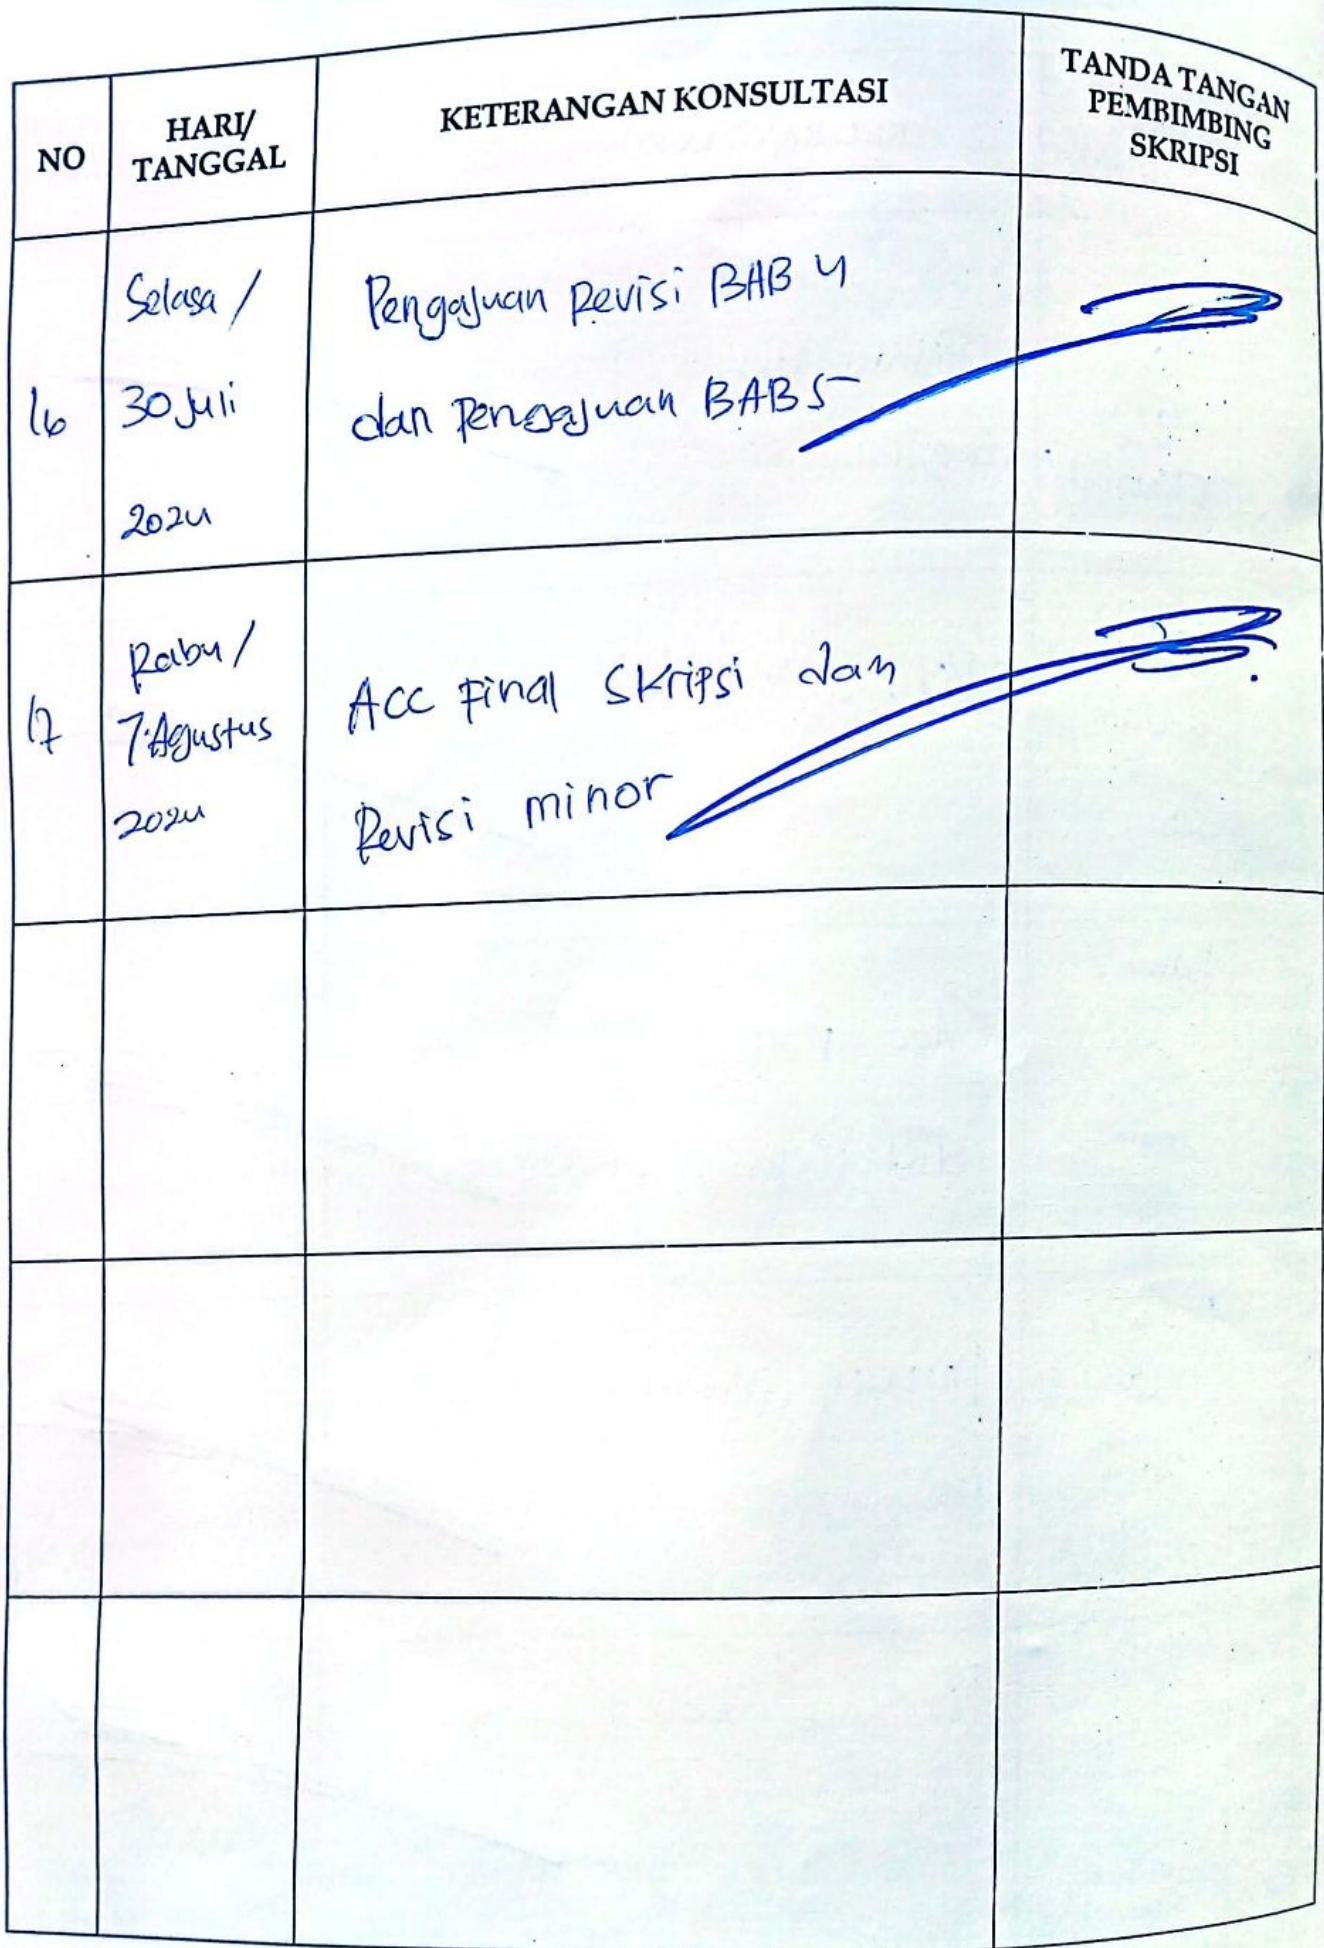 NO
HARI/
TANGGAL
KETERANGAN KONSULTASI
TANDA TANGAN
PEMBIMBING
SKRIPSI
16
Selasa /
30 Juli
2024
Pengajuan Revisi BAB 4
dan Pengajuan BAB 5
17
Rabu /
7 Agustus
2024
ACC Final Skripsi dan
Revisi minor